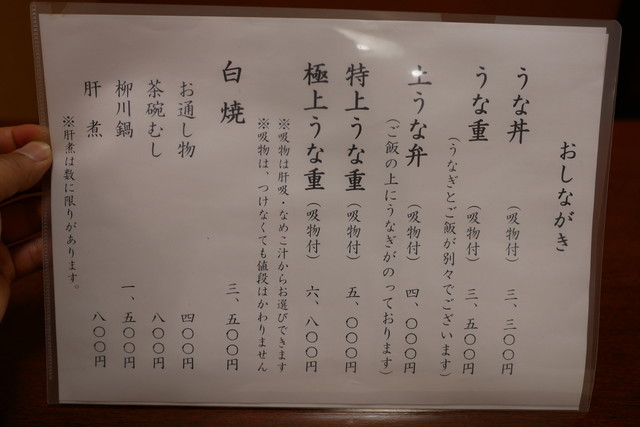 おしながき
うな丼(吸物付) 三、三〇〇円
うな重(吸物付) 三、五〇〇円
(うなぎとご飯が別々でございます)
上うな弁(吸物付) 四、〇〇〇円
(ご飯の上にうなぎがのっております)
特上うな重(吸物付) 五、〇〇〇円
極上うな重(吸物付) 六、八〇〇円
※吸物は肝吸・なめこ汁からお選びできます
※吸物は、つけなくても値段はかわりません
白焼 三、五〇〇円
お通し物 四〇〇円
茶碗むし 八〇〇円
柳川鍋 一、五〇〇円
肝煮 八〇〇円
※肝煮は数に限りがあります。